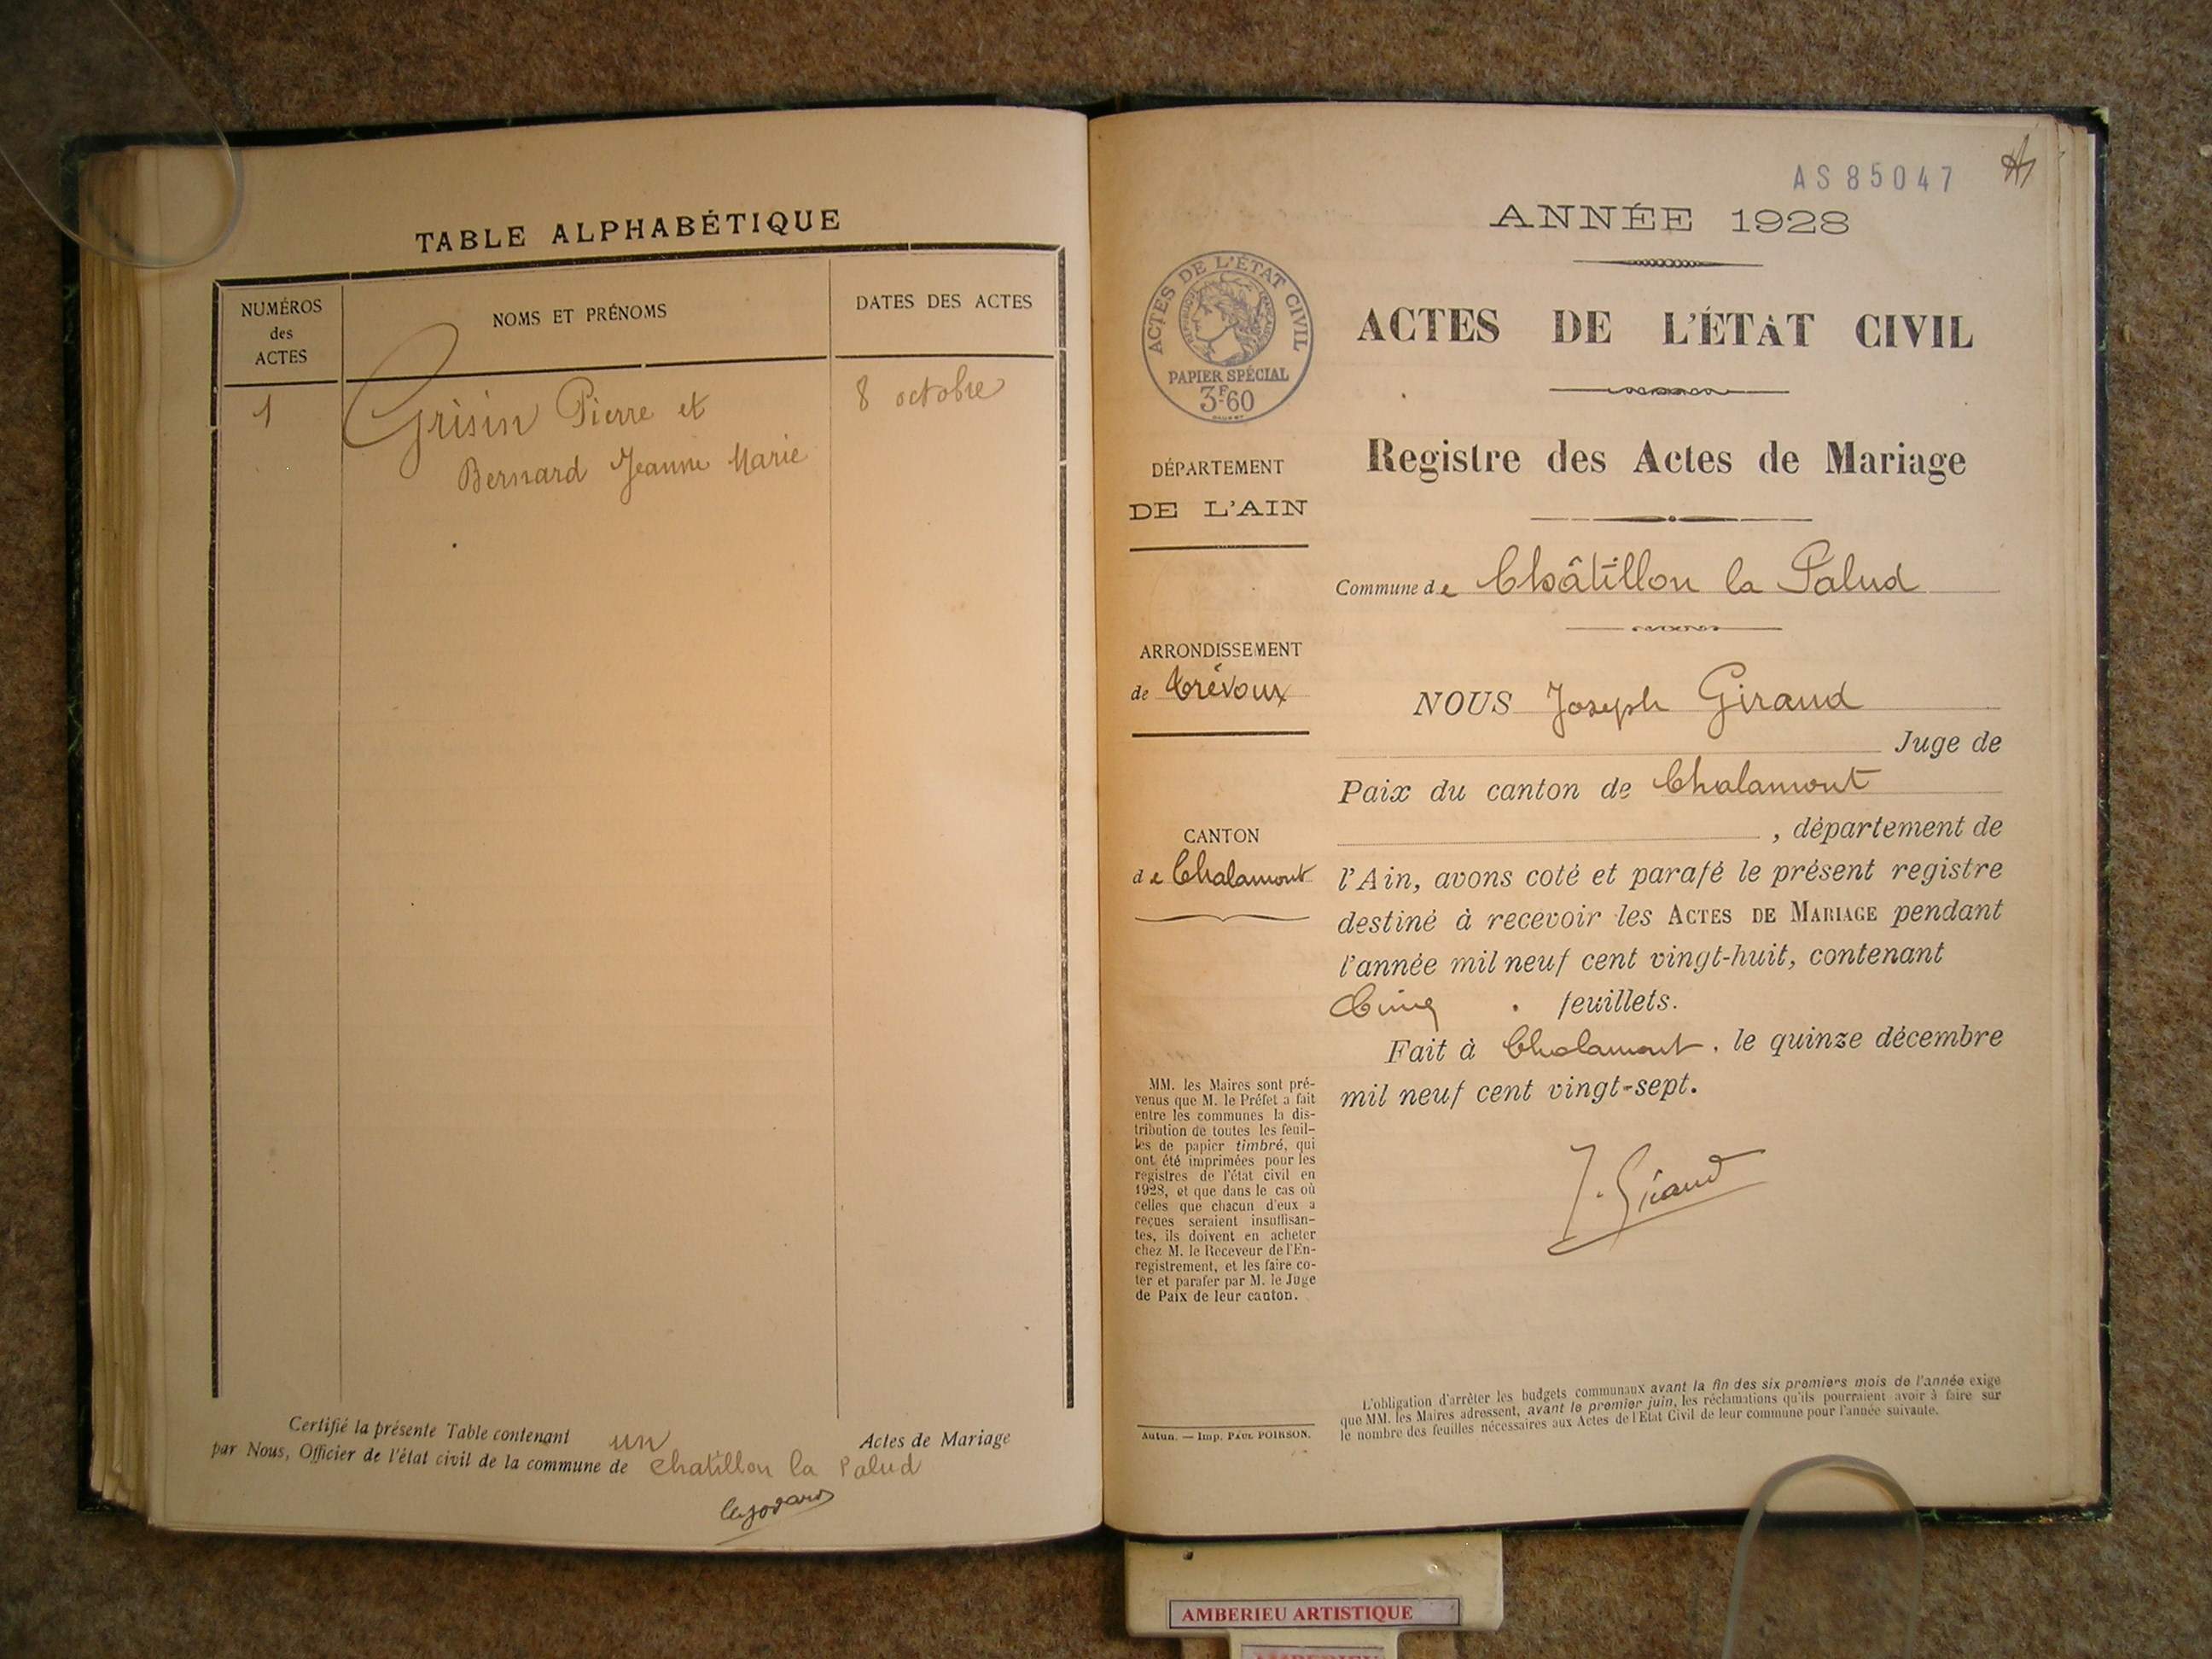 TABLE ALPHABÉTIQUE
NUMÉROS
des
ACTES
NOMS ET PRÉNOMS
DATES DES ACTES
1
Grisin Pierre et
8 octobre
Bernard Jeanne Marie
Certifié la présente Table contenant un Actes de Mariage
par Nous, Officier de l'état civil de la commune de Chatillon la Palud
AS 85047
ANNÉE 1928
ACTES DE L'ÉTAT CIVIL
RÉPUBLIQUE FRANÇAISE
PAPIER SPÉCIAL
3F60
ACTES DE L'ÉTAT CIVIL
Registre des Actes de Mariage
DÉPARTEMENT
DE L'AIN
Commune de Châtillon la Palud
ARRONDISSEMENT
de Trévoux
CANTON
de Chalamont
NOUS Joseph Giraud
Juge de
Paix du canton de Chalamont
, département de
l'Ain, avons coté et parafé le présent registre
destiné à recevoir les ACTES DE MARIAGE pendant
l'année mil neuf cent vingt-huit, contenant
Cinq feuillets.
Fait à Chalamont, le quinze décembre
mil neuf cent vingt-sept.
J. Giraud
MM. les Maires sont pré-
venus que M. le Préfet a fait
entre les communes la dis-
tribution de toutes les feuil-
les de papier timbré, qui
ont été imprimées pour les
registres de l'état civil en
1928, et que dans le cas où
celles que chacun d'eux a
reçues seraient insuffisan-
tes, ils doivent en acheter
chez M. le Receveur de l'En-
registrement, et les faire co-
ter et parafer par M. le Juge
de Paix de leur canton.
Autun. — Imp. PAUL POIRSON.
L'obligation d'arrêter les budgets communaux avant la fin des six premiers mois de l'année exige
que MM. les Maires adressent, avant le premier juin, les réclamations qu'ils pourraient avoir à faire sur
le nombre des feuilles nécessaires aux Actes de l'Etat Civil de leur commune pour l'année suivante.
AMBERIEU ARTISTIQUE
AMBERIEU